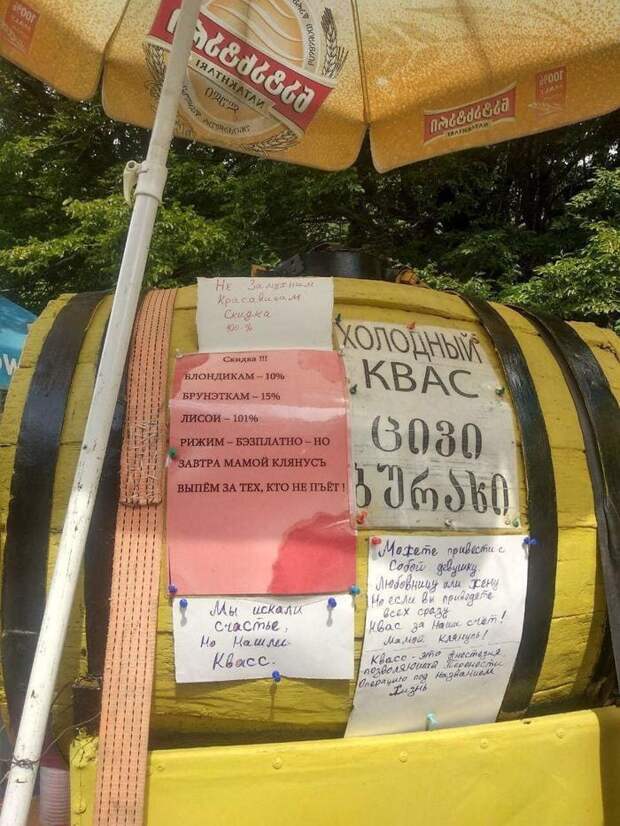 100%
ნატახტარი
NATAKHTARI
ლუდი
ნატახტარი
NATAKHTARI
100%
Не Замужним
Красавицам
Скидка
100%
Скидка !!!
БЛОНДИКАМ – 10%
БРУНЭТКАМ – 15%
ЛИСОЙ – 101%
РИЖИМ – БЭЗПЛАТНО – НО
ЗАВТРА МАМОЙ КЛЯНУСЪ
ВЫПЪЁМ ЗА ТЕХ, КТО НЕ ПЪЁТ !
ХОЛОДНЫЙ
КВАС
ცივი
ბურახი
Мы искали
счастье,
Но Нашли
Квасс.
Можете привести с
Собой девушку,
Любовницу или Жену
Но если вы приведёте
всех сразу
Квас за наш счёт!
Мамой Клянусь!
Квасс - это Анестезия
позволяющая перенести
Операцию под названием
Жизнь